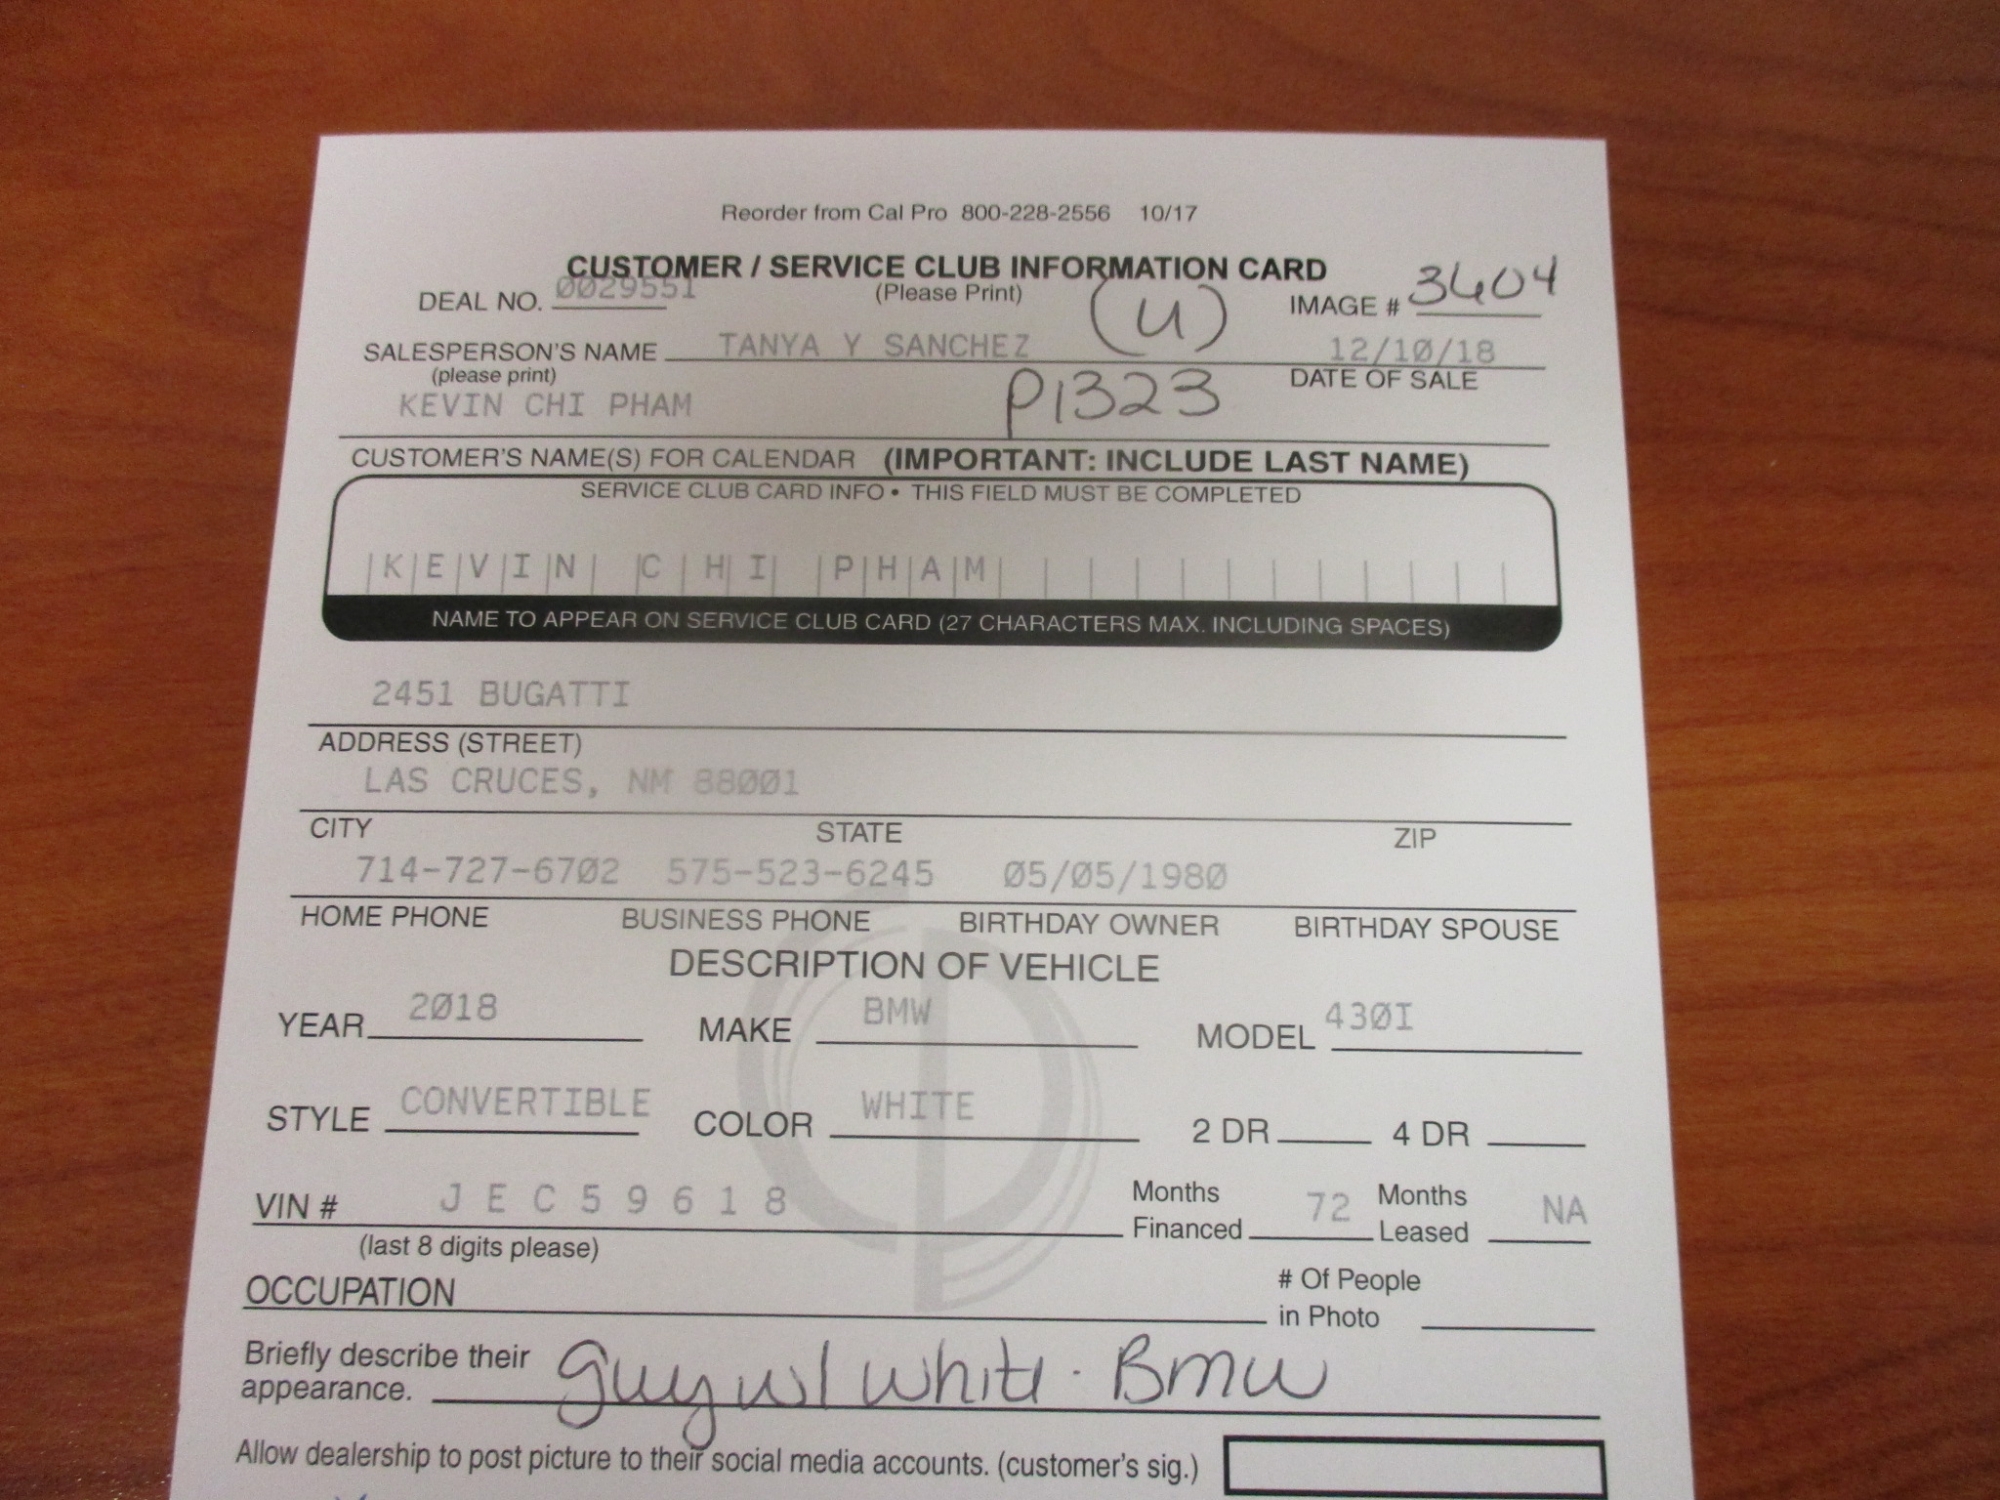 Reorder from Cal Pro 800-228-2556 10/17
CUSTOMER / SERVICE CLUB INFORMATION CARD
DEAL NO. 0029551 (Please Print) (U) IMAGE # 3604
SALESPERSON'S NAME TANYA Y SANCHEZ 12/10/18
(please print) DATE OF SALE
KEVIN CHI PHAM P1323
CUSTOMER'S NAME(S) FOR CALENDAR (IMPORTANT: INCLUDE LAST NAME)
SERVICE CLUB CARD INFO • THIS FIELD MUST BE COMPLETED
KEVIN CHI PHAM
NAME TO APPEAR ON SERVICE CLUB CARD (27 CHARACTERS MAX. INCLUDING SPACES)
2451 BUGATTI
ADDRESS (STREET)
LAS CRUCES, NM 88001
CITY STATE ZIP
714-727-6702 575-523-6245 05/05/1980
HOME PHONE BUSINESS PHONE BIRTHDAY OWNER BIRTHDAY SPOUSE
DESCRIPTION OF VEHICLE
YEAR 2018 MAKE BMW MODEL 430I
STYLE CONVERTIBLE COLOR WHITE 2 DR 4 DR
VIN # JEC59618 Months Financed 72 Months Leased NA
(last 8 digits please)
OCCUPATION # Of People in Photo
Briefly describe their appearance. Guy w/ white - Bmw
Allow dealership to post picture to their social media accounts. (customer's sig.)